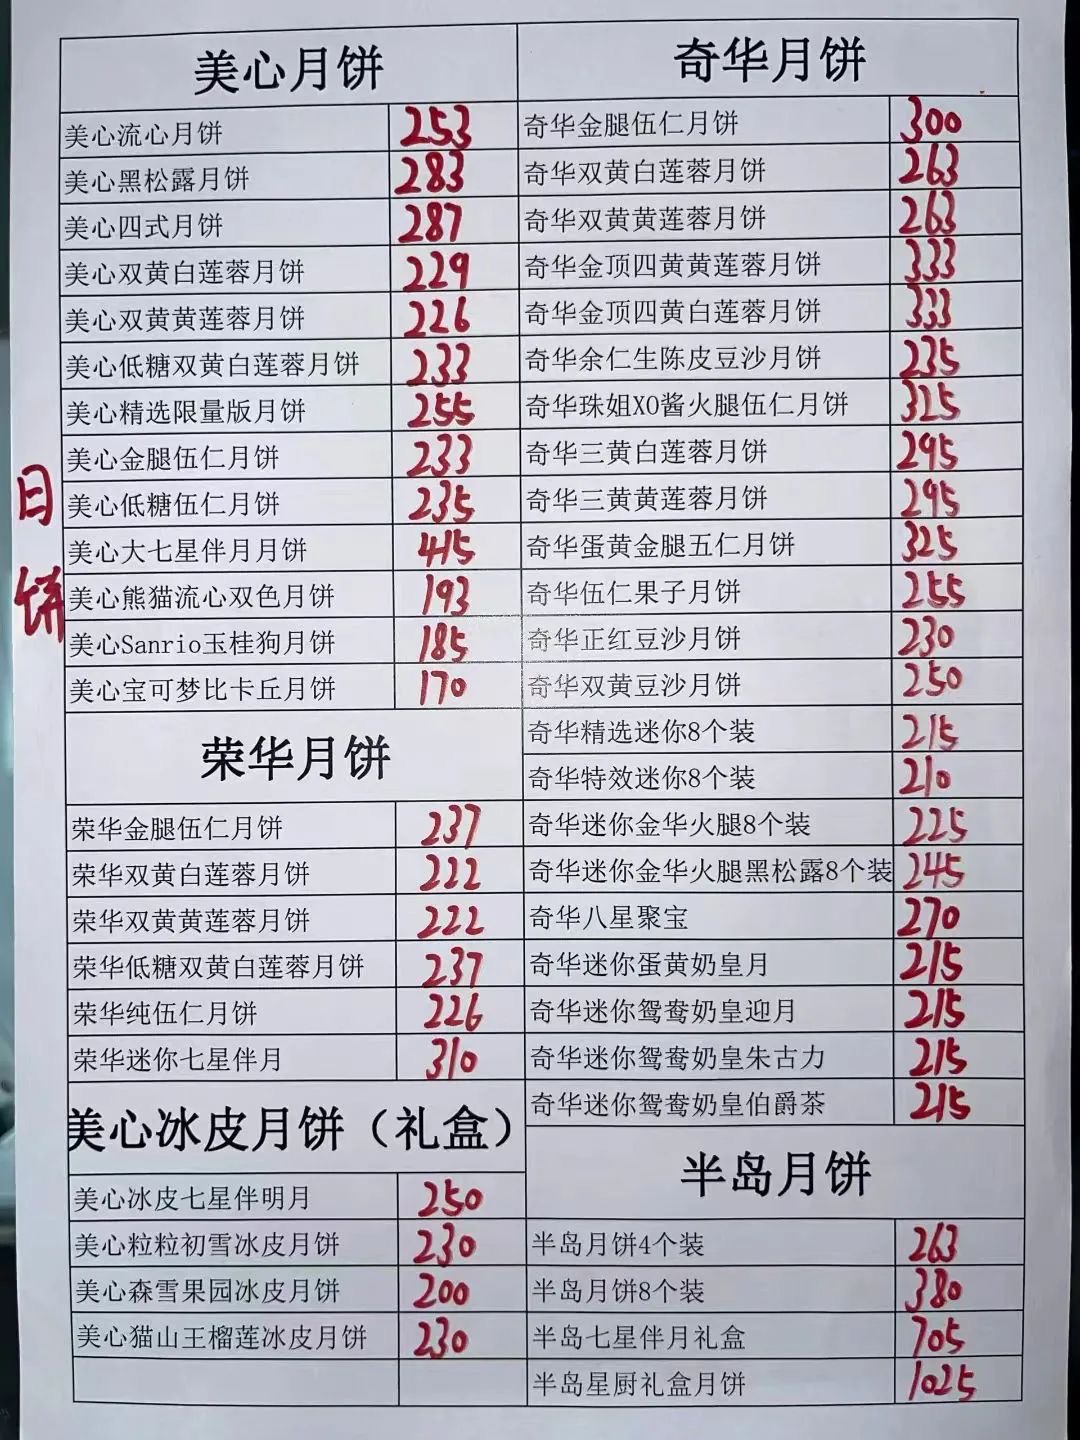 美心月饼
美心流心月饼 253
美心黑松露月饼 283
美心四式月饼 287
美心双黄白莲蓉月饼 229
美心双黄黄莲蓉月饼 226
美心低糖双黄白莲蓉月饼 233
美心精选限量版月饼 255
美心金腿伍仁月饼 233
美心低糖伍仁月饼 235
美心大七星伴月月饼 415
美心熊猫流心双色月饼 193
美心Sanrio玉桂狗月饼 185
美心宝可梦比卡丘月饼 170
荣华月饼
荣华金腿伍仁月饼 237
荣华双黄白莲蓉月饼 222
荣华双黄黄莲蓉月饼 222
荣华低糖双黄白莲蓉月饼 237
荣华纯伍仁月饼 226
荣华迷你七星伴月 310
美心冰皮月饼（礼盒）
美心冰皮七星伴明月 250
美心粒粒初雪冰皮月饼 230
美心森雪果园冰皮月饼 200
美心猫山王榴莲冰皮月饼 230
奇华月饼
奇华金腿伍仁月饼 300
奇华双黄白莲蓉月饼 263
奇华双黄黄莲蓉月饼 263
奇华金顶四黄黄莲蓉月饼 333
奇华金顶四黄白莲蓉月饼 333
奇华余仁生陈皮豆沙月饼 235
奇华珠姐XO酱火腿伍仁月饼 325
奇华三黄白莲蓉月饼 295
奇华三黄黄莲蓉月饼 295
奇华蛋黄金腿五仁月饼 325
奇华伍仁果子月饼 255
奇华正红豆沙月饼 230
奇华双黄豆沙月饼 250
奇华精选迷你8个装 215
奇华特效迷你8个装 210
奇华迷你金华火腿8个装 225
奇华迷你金华火腿黑松露8个装 245
奇华八星聚宝 270
奇华迷你蛋黄奶皇月 215
奇华迷你鸳鸯奶皇迎月 215
奇华迷你鸳鸯奶皇朱古力 215
奇华迷你鸳鸯奶皇伯爵茶 215
半岛月饼
半岛月饼4个装 263
半岛月饼8个装 380
半岛七星伴月礼盒 705
半岛星厨礼盒月饼 1025
日
饼